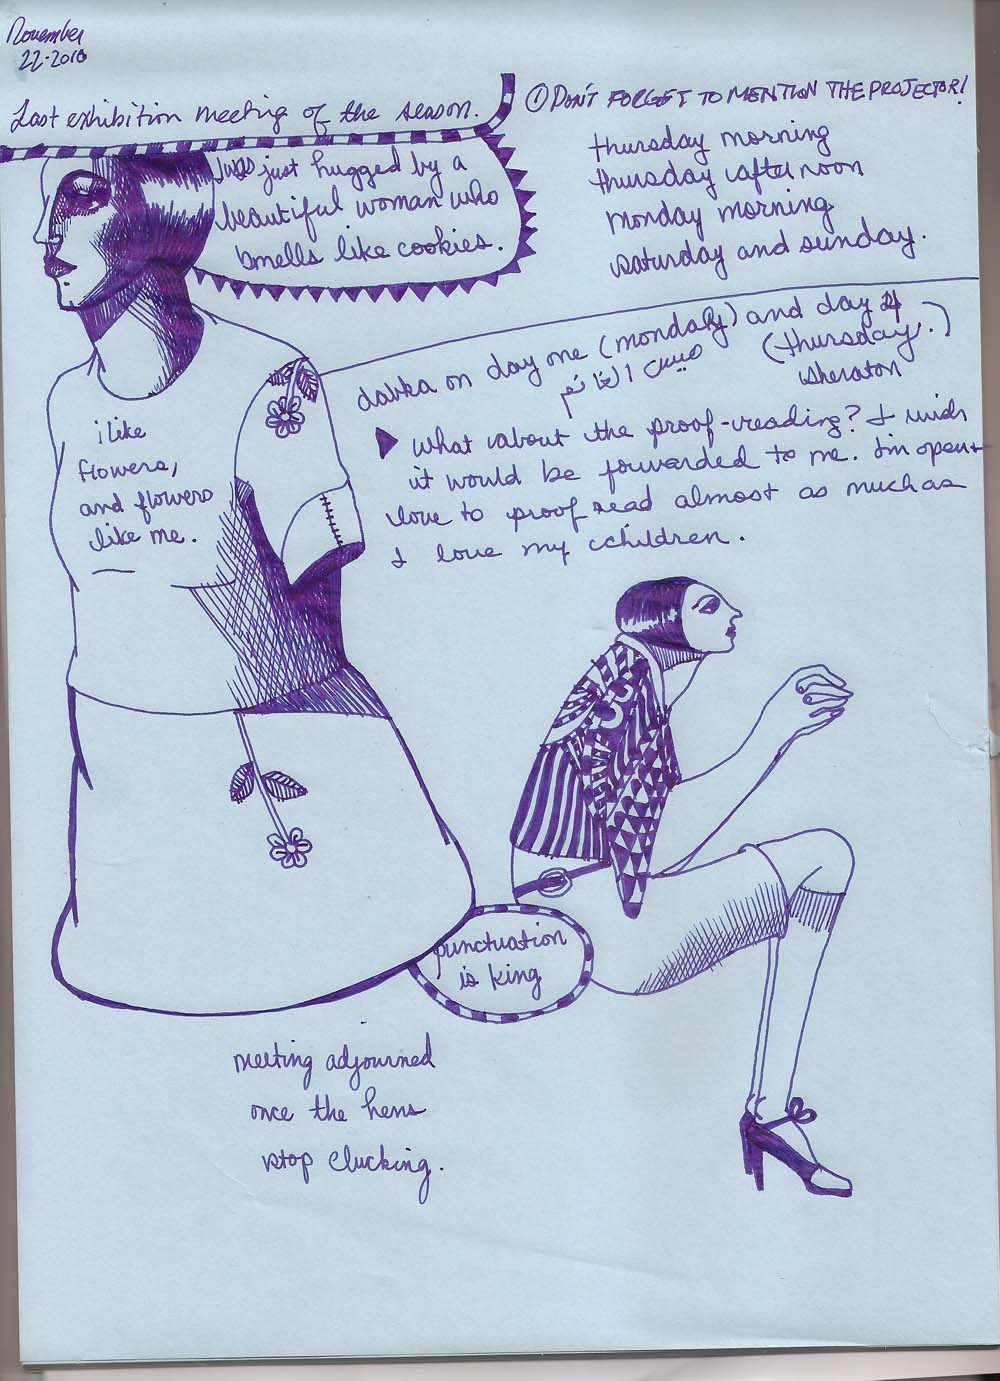 November
22-2010
Last exhibition meeting of the season.
I was just hugged by a
beautiful woman who
smells like cookies.
① DON'T FORGET TO MENTION THE PROJECTOR!
thursday morning
thursday afternoon
monday morning
saturday and sunday.
dabka on day one (monday) and day 4
(thursday.)
sheraton
▶ what about the proof-reading? I wish
it would be forwarded to me. I'm open +
love to proof read almost as much as
I love my children.
i like
flowers,
and flowers
like me.
punctuation
is king
meeting adjourned
once the hens
stop clucking.